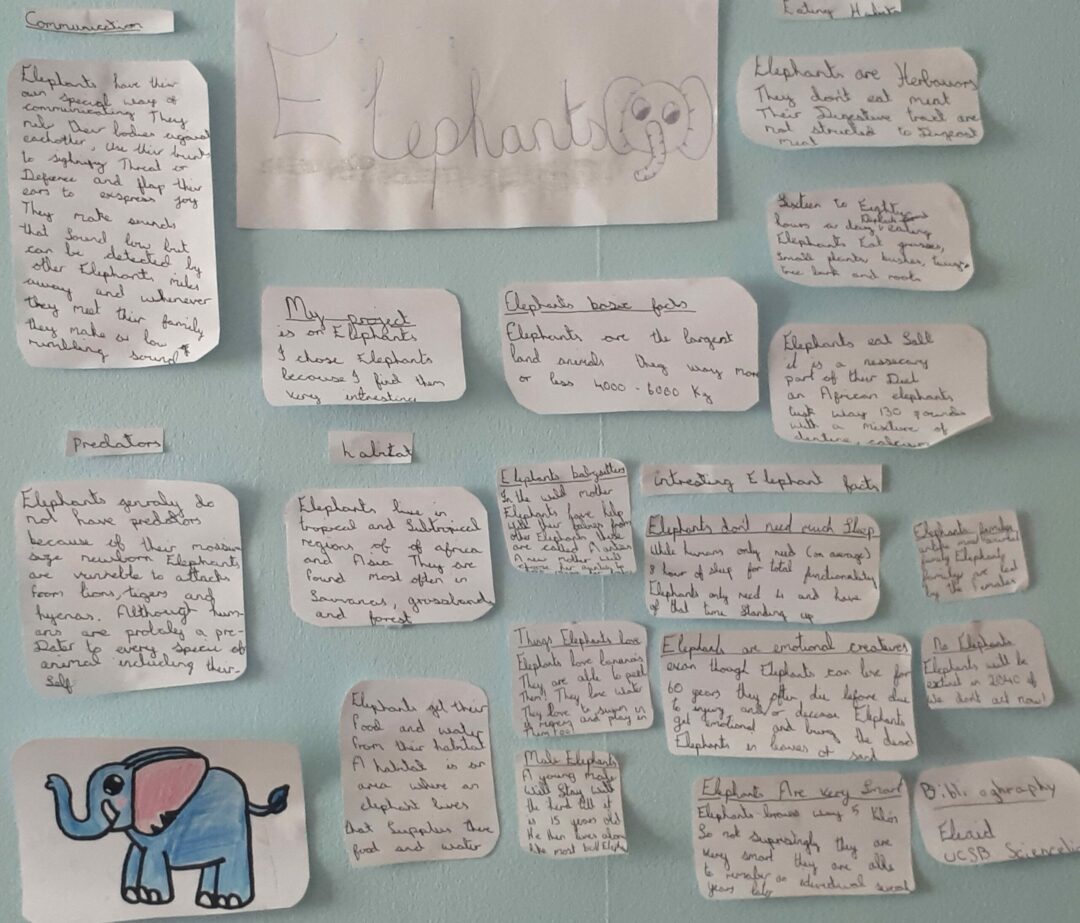 Communication
Elephants have their
own special way of
communicating They
rub their bodies against
eachother, Use their trunks
to sighnifry Threat or
Defience and flap their
ears to exspress joy
They make sounds
that sound low but
can be detected by
other Elephants miles
away and whenever
they meet their family
they make a low
rumbling sound
Elephants
Eating Habits
Elephants are Herbavours
They don't eat meat
Their Digestive tract are
not structed to Digeast
meat
Sixteen to Eighty
hours a day eating
Elephants Eat grasses,
small plants, bushes, twigs,
tree bark and roots
Elephants eat Salt
it is a nessecary
part of their Diet
an African elephants
tusk way 130 pounds
with a mixture of
dentine, calcium
My project
is on Elephants
I chose Elephants
because I find them
very intresting
Elephants basic facts
Elephants are the largest
land animals they way more
or less 4000 - 6000 Kg
predators
Elephants genraly do
not have predators
because of their massive
size newborn Elephants
are vunrable to attacks
from lions, tigers and
hyenas. Although hum-
ans are probaly a pre-
Dater to every specie of
animal including their-
Self
habitat
Elephants live in
tropical and Subtropical
regions of of africa
and Asia They are
found most often in
Savananas, grassland
and forest
Elephants get their
food and water
from their habitat
A habitat is an
area where an
elephant lives
that Supplies there
food and water
Elephants babysitters
In the wild mother
Elephants have help
with their babies from
other Elephants these
are called
A new mother will
Things Elephants love
Elephants love bananas
They are able to peel
Them! They love water
They love to swim in
and play in
Male Elephants
A young male
will Stay with
the herd till it
is 15 years old
He then lives alone
like most bull
intresting Elephant facts
Elephants don't need much Sleep
While humans only need (on average)
8 hour of sleep for total functionality
Elephants only need 4 and have
of that time Standing up
Elephant are emotional creatures
even though Elephants can live for
60 years they often die before due
to injury and/or decease Elephants
get emotional and bury the dead
Elephants in leaves or sand
Elephants Are very Smart
Elephants brains way 5 Kilos
So not suprisingly they are
very smart they are able
to remember an
years later
Elephants families
unlike most
family Elephant
families are led
by the Females
No Elephants
Elephants will be
extinct in 2040 if
We don't act now!
Bibli oghraphy
UCSB